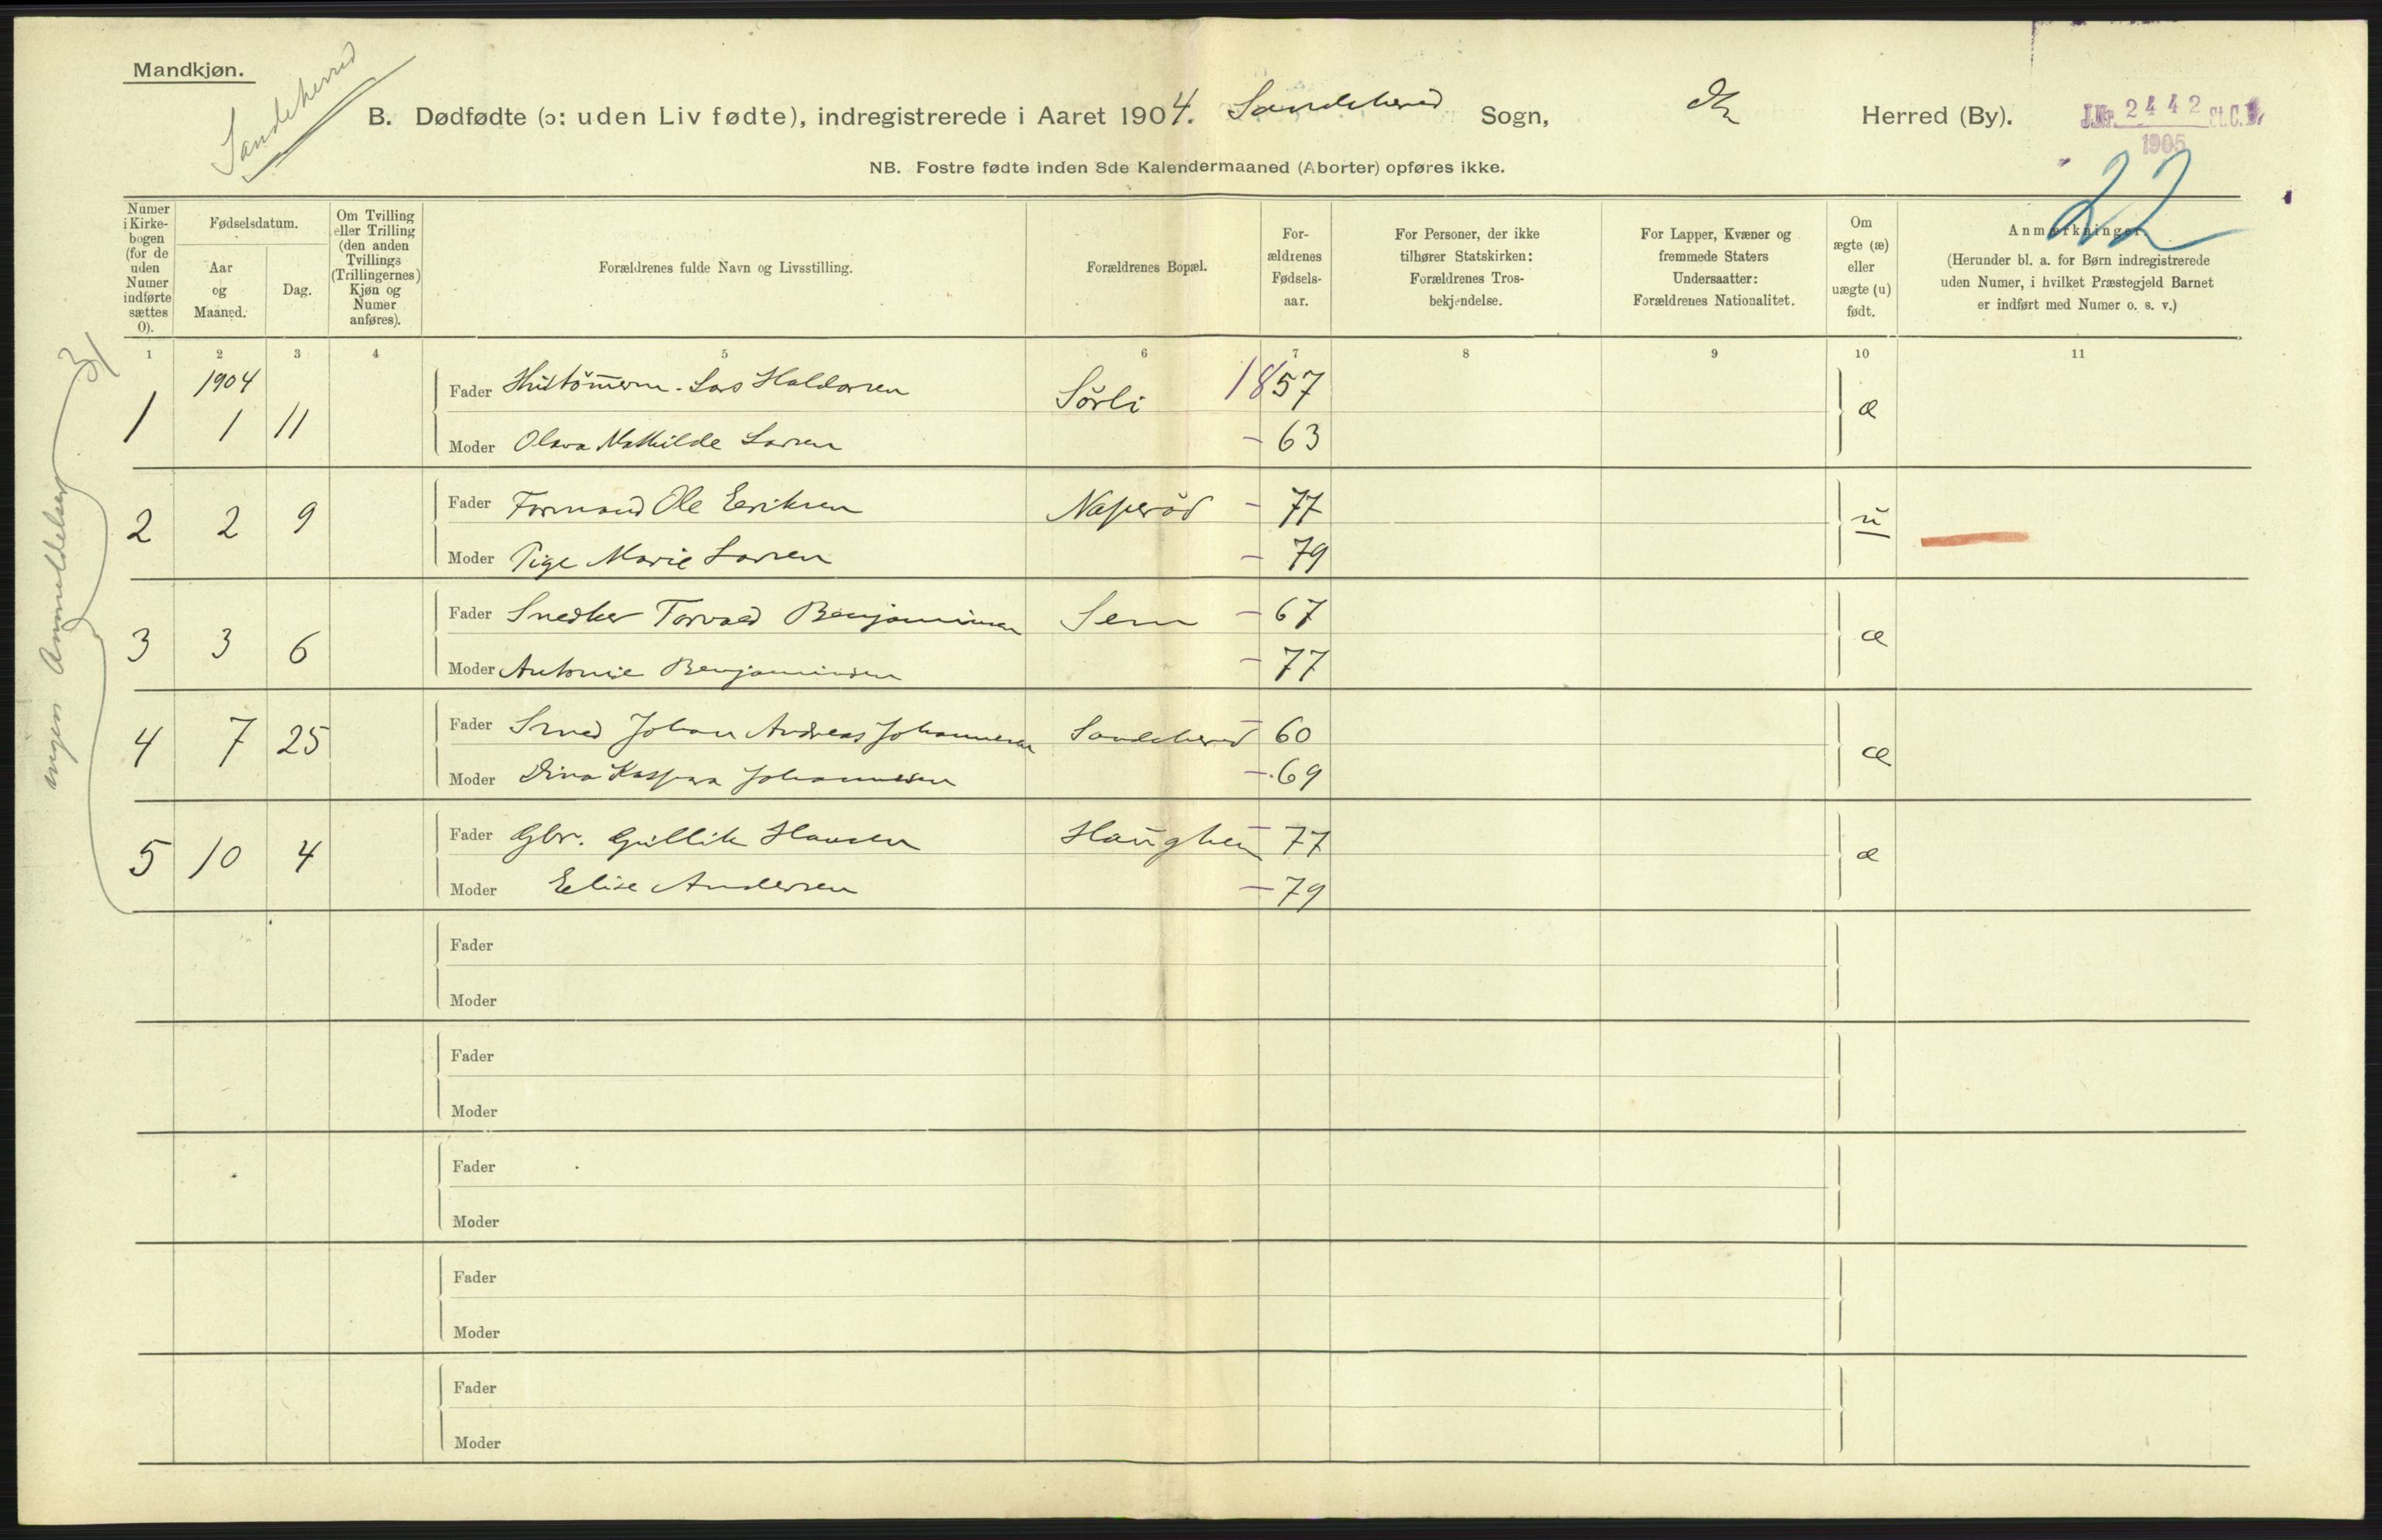 Mandkjøn.
Sandeherred
B. Dødfødte (ɔ: uden Liv fødte), indregistrerede i Aaret 1904. Sandeherred Sogn, Herred (By).
J.Nr. 2442 St.C.
1905
NB. Fostre fødte inden 8de Kalendermaaned (Aborter) opføres ikke.
22
Numer i Kirke-bogen (for de uden Numer indførte sættes 0).
Fødselsdatum.
Aar og Maaned.
Dag.
Om Tvilling eller Trilling (den anden Tvillings (Trillingernes) Kjøn og Numer anføres).
Forældrenes fulde Navn og Livsstilling.
Forældrenes Bopæl.
For-ældrenes Fødsels-aar.
For Personer, der ikke tilhører Statskirken: Forældrenes Tros-bekjendelse.
For Lapper, Kvæner og fremmede Staters Undersaatter: Forældrenes Nationalitet.
Om ægte (æ) eller uægte (u) født.
Anmærkninger.
(Herunder bl. a. for Børn indregistrerede uden Numer, i hvilket Præstegjeld Barnet er indført med Numer o. s. v.)
1 2 3 4 5 6 7 8 9 10 11
ingen Anmeldelse
3/1
1904
1 1 11 Fader Hustömerm. Lars Haldorsen Sörli 1857 æ
Moder Olava Mathilde Larsen – 63
2 2 9 Fader Formand Ole Eriksen Naperöd – 77 u
Moder Pige Marie Larsen – 79
3 3 6 Fader Snedker Torvald Benjaminsen Sem – 67 æ
Moder Antonie Benjaminsen – 77
4 7 25 Fader Smed Johan Andreas Johannesen Sandeherred – 60 æ
Moder Dina Kaspara Johannesen – 69
5 10 4 Fader Gbr. Gullik Hansen Haughem – 77 æ
Moder Elise Andersen – 79
Fader
Moder
Fader
Moder
Fader
Moder
Fader
Moder
Fader
Moder